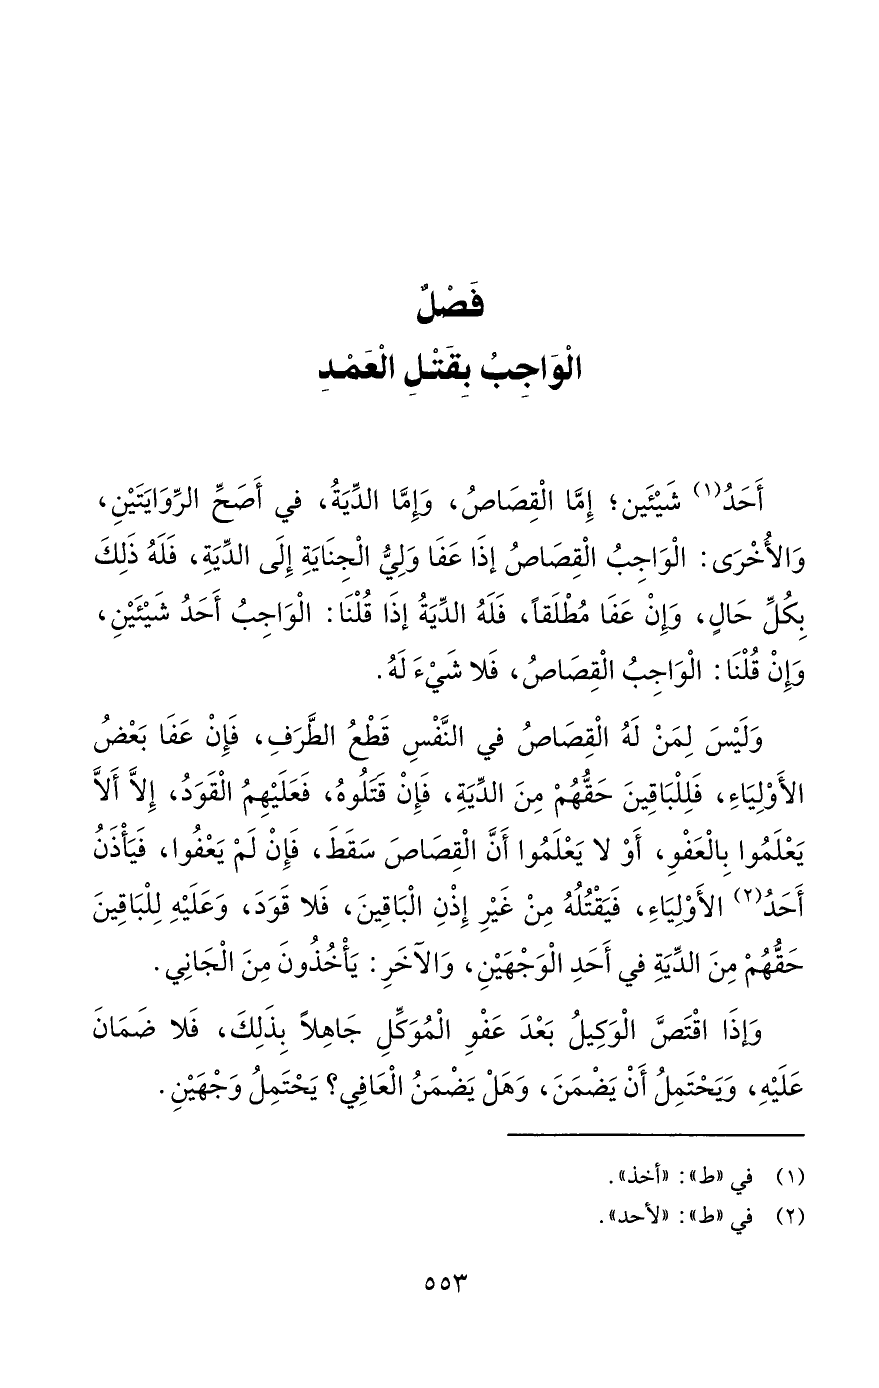 فَصْلٌ
الْوَاجِبُ بِقَتْلِ الْعَمْدِ
أَحَدُ(١) شَيْئَين؛ إِمَّا الْقِصَاصُ، وَإِمَّا الدِّيَةُ، في أَصَحِّ الرِّوَايَتَيْنِ،
وَالأُخْرَى: الْوَاجِبُ الْقِصَاصُ إذَا عَفَا وَلِيُّ الْجِنَايَةِ إِلَى الدِّيَةِ، فَلَهُ ذَلِكَ
بِكُلِّ حَالٍ، وَإِنْ عَفَا مُطْلَقاً، فَلَهُ الدِّيَةُ إذَا قُلْنَا: الْوَاجِبُ أَحَدُ شَيْئَيْنِ،
وَإِنْ قُلْنَا: الْوَاجِبُ الْقِصَاصُ، فَلا شَيْءَ لَهُ.
وَلَيْسَ لِمَنْ لَهُ الْقِصَاصُ في النَّفْسِ قَطْعُ الطَّرَفِ، فَإِنْ عَفَا بَعْضُ
الأَوْلِيَاءِ، فَلِلْبَاقِينَ حَقُّهُمْ مِنَ الدِّيَةِ، فَإِنْ قَتَلُوهُ، فَعَلَيْهِمُ الْقَوَدُ، إِلاَّ أَلاَّ
يَعْلَمُوا بِالْعَفْوِ، أَوْ لا يَعْلَمُوا أَنَّ الْقِصَاصَ سَقَطَ، فَإِنْ لَمْ يَعْفُوا، فَيَأْذَنُ
أَحَدُ(٢) الأَوْلِيَاءِ، فَيَقْتُلُهُ مِنْ غَيْرِ إِذْنِ الْبَاقِينَ، فَلا قَوَدَ، وَعَلَيْهِ لِلْبَاقِينَ
حَقُّهُمْ مِنَ الدِّيَةِ في أَحَدِ الْوَجْهَيْنِ، وَالآخَرِ: يَأْخُذُونَ مِنَ الْجَانِي.
وَإِذَا اقْتَصَّ الْوَكِيلُ بَعْدَ عَفْوِ الْمُوَكِّلِ جَاهِلاً بِذَلِكَ، فَلا ضَمَانَ
عَلَيْهِ، وَيَحْتَمِلُ أَنْ يَضْمَنَ، وَهَلْ يَضْمَنُ الْعَافِي؟ يَحْتَمِلُ وَجْهَيْنِ.
(١) في «ط»: «أخذ».
(٢) في «ط»: «لأحد».
٥٥٣